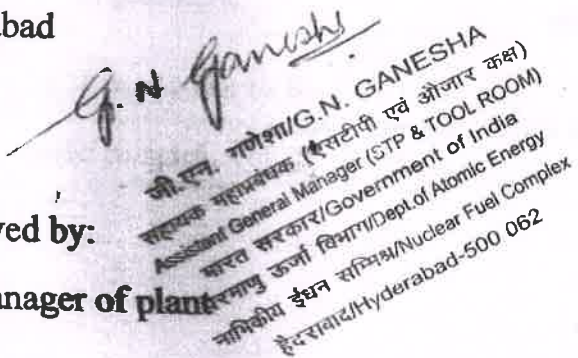 abad
G. N Ganesha
जी.एन. गणेशा/G.N. GANESHA
सहायक महाप्रबंधक (एसटीपी एवं औजार कक्ष)
Assistant General Manager (STP & TOOL ROOM)
भारत सरकार/Government of India
परमाणु ऊर्जा विभाग/Dept.of Atomic Energy
नाभिकीय ईंधन सम्मिश्र/Nuclear Fuel Complex
हैदराबाद/Hyderabad-500 062
ved by:
anager of plant